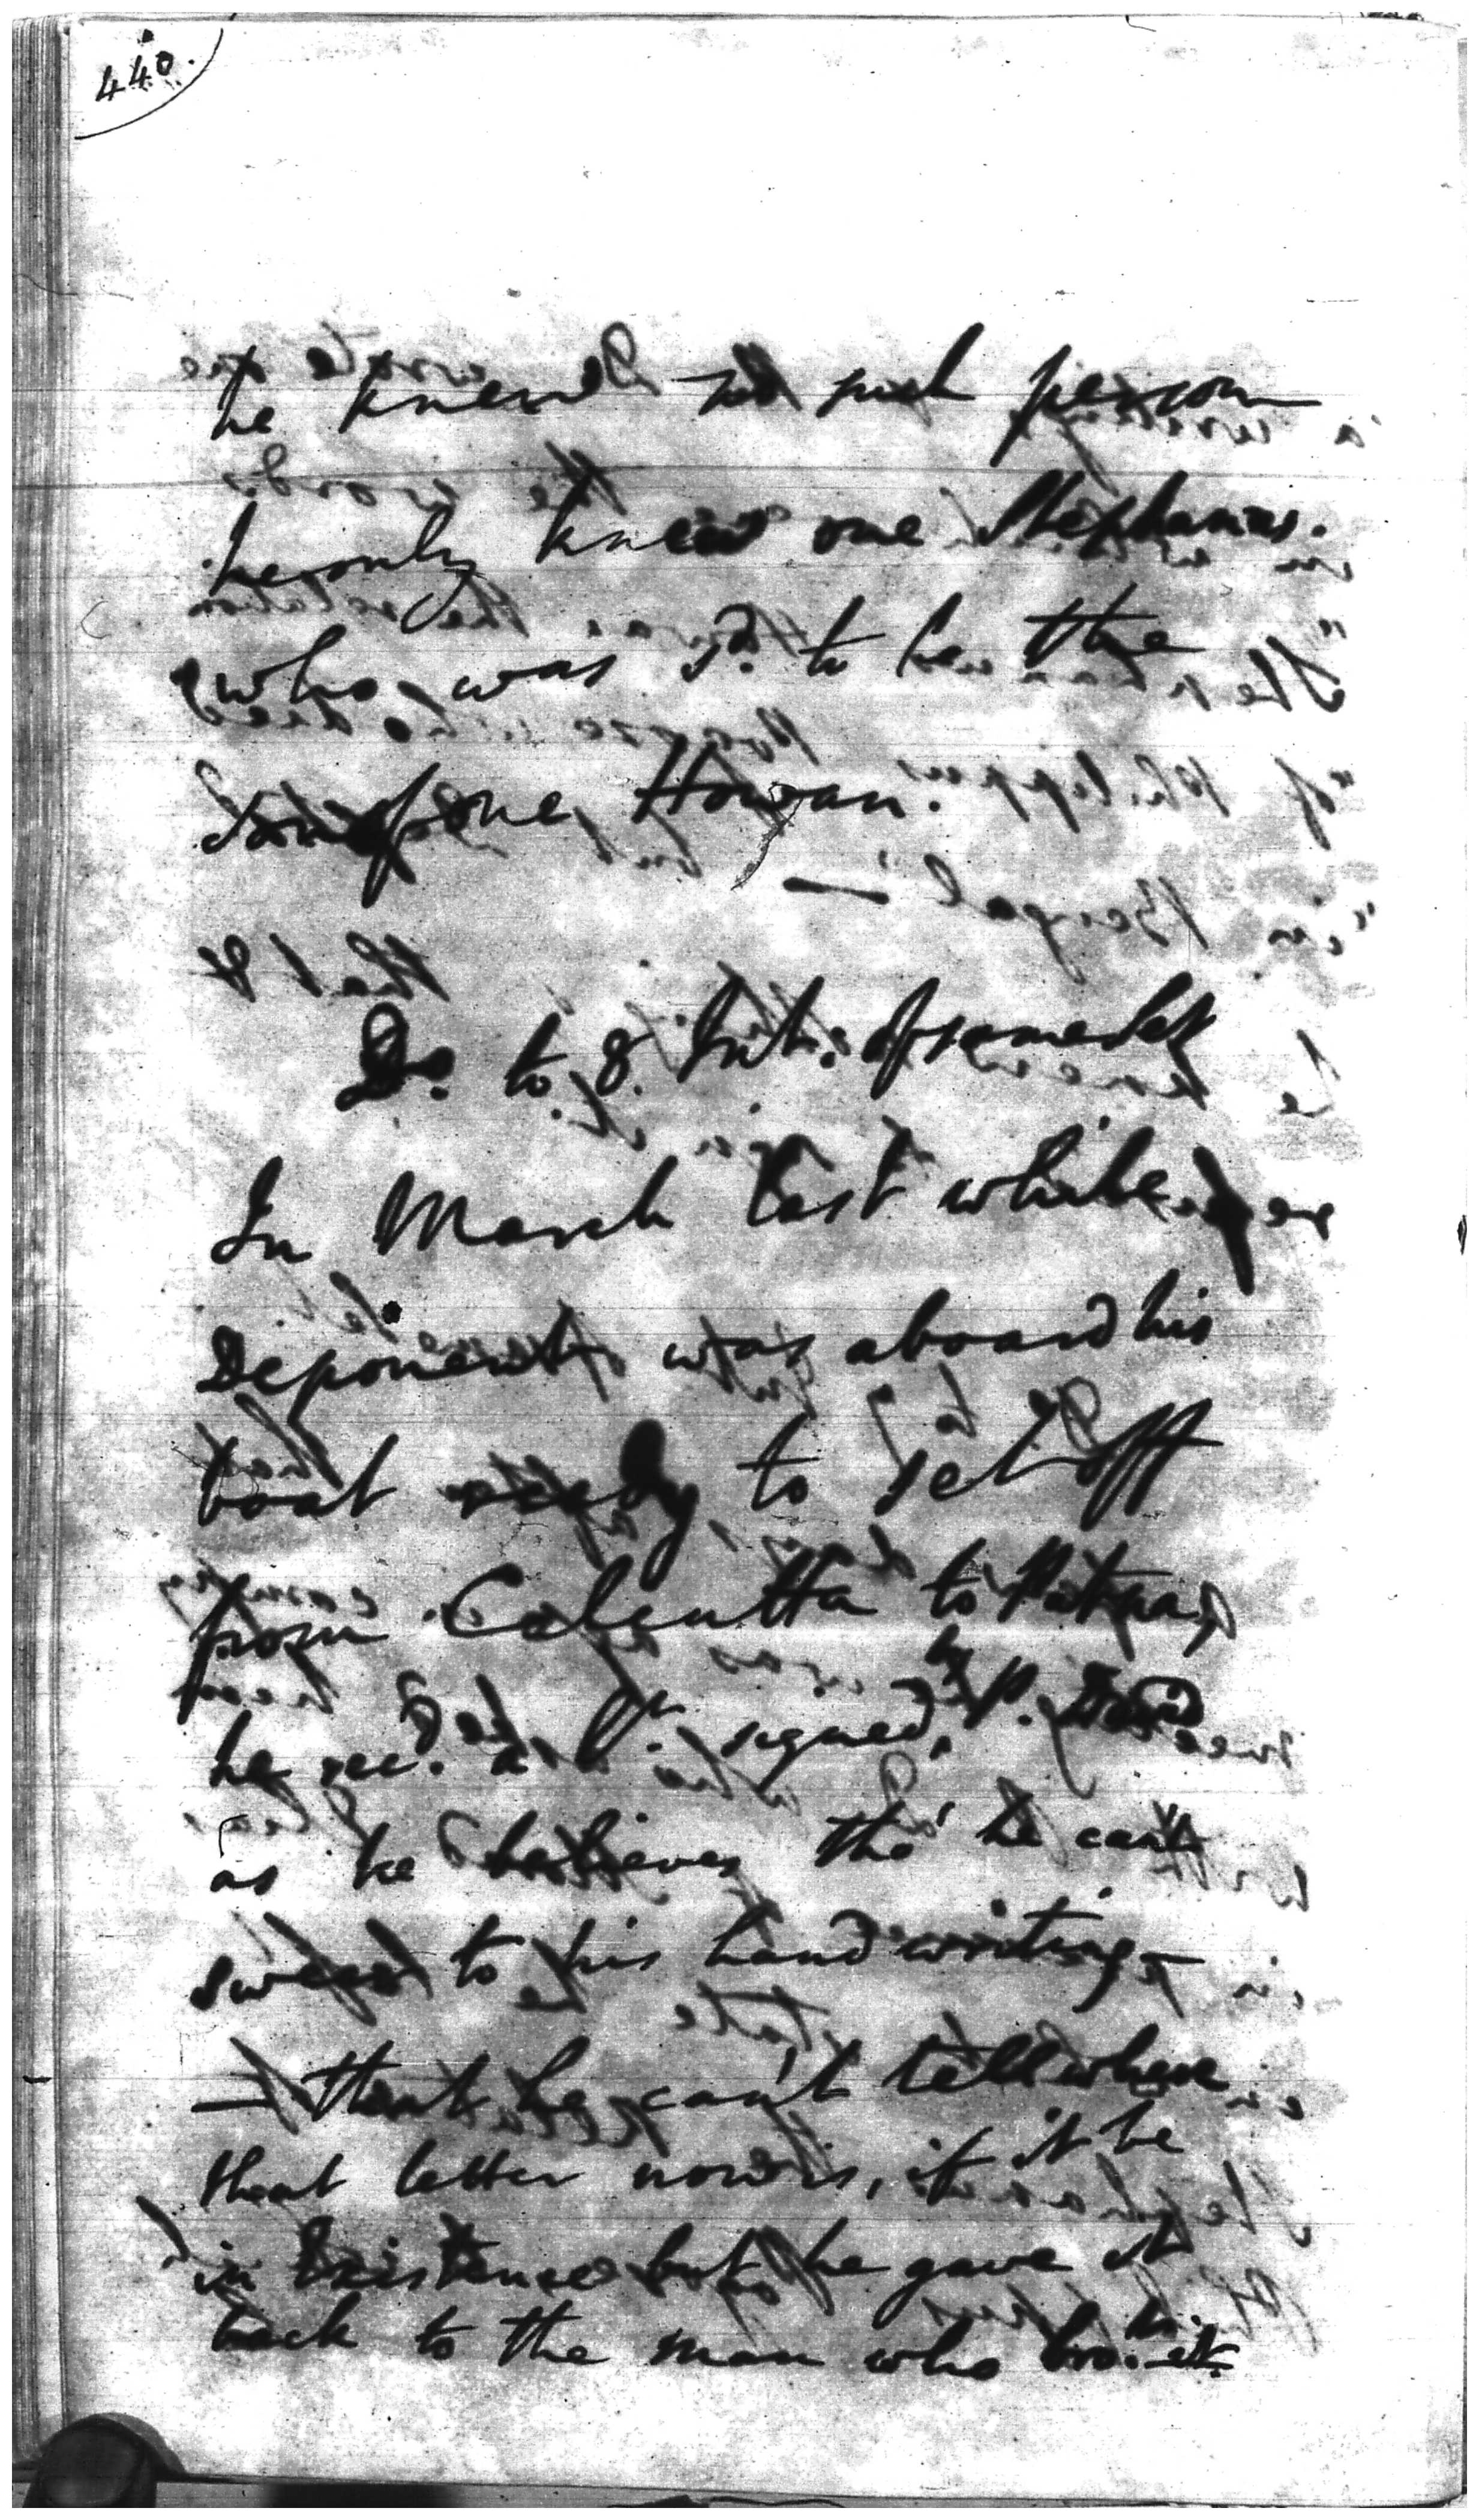 440.
he knew no such person
he only knew one Stephanus.
who was sd. to be the
son of one Howan.
Do. to 8. Int. of same
In March last while
Deponent was aboard his
boat ready to set off
from Calcutta to Patna,
he recd. a lr. signed, by P.
as he believes tho' he can't
swear to his handwriting
— that he can't tell where
that letter now is, if it be
in Existence but he gave it
back to the man who bro.ht it